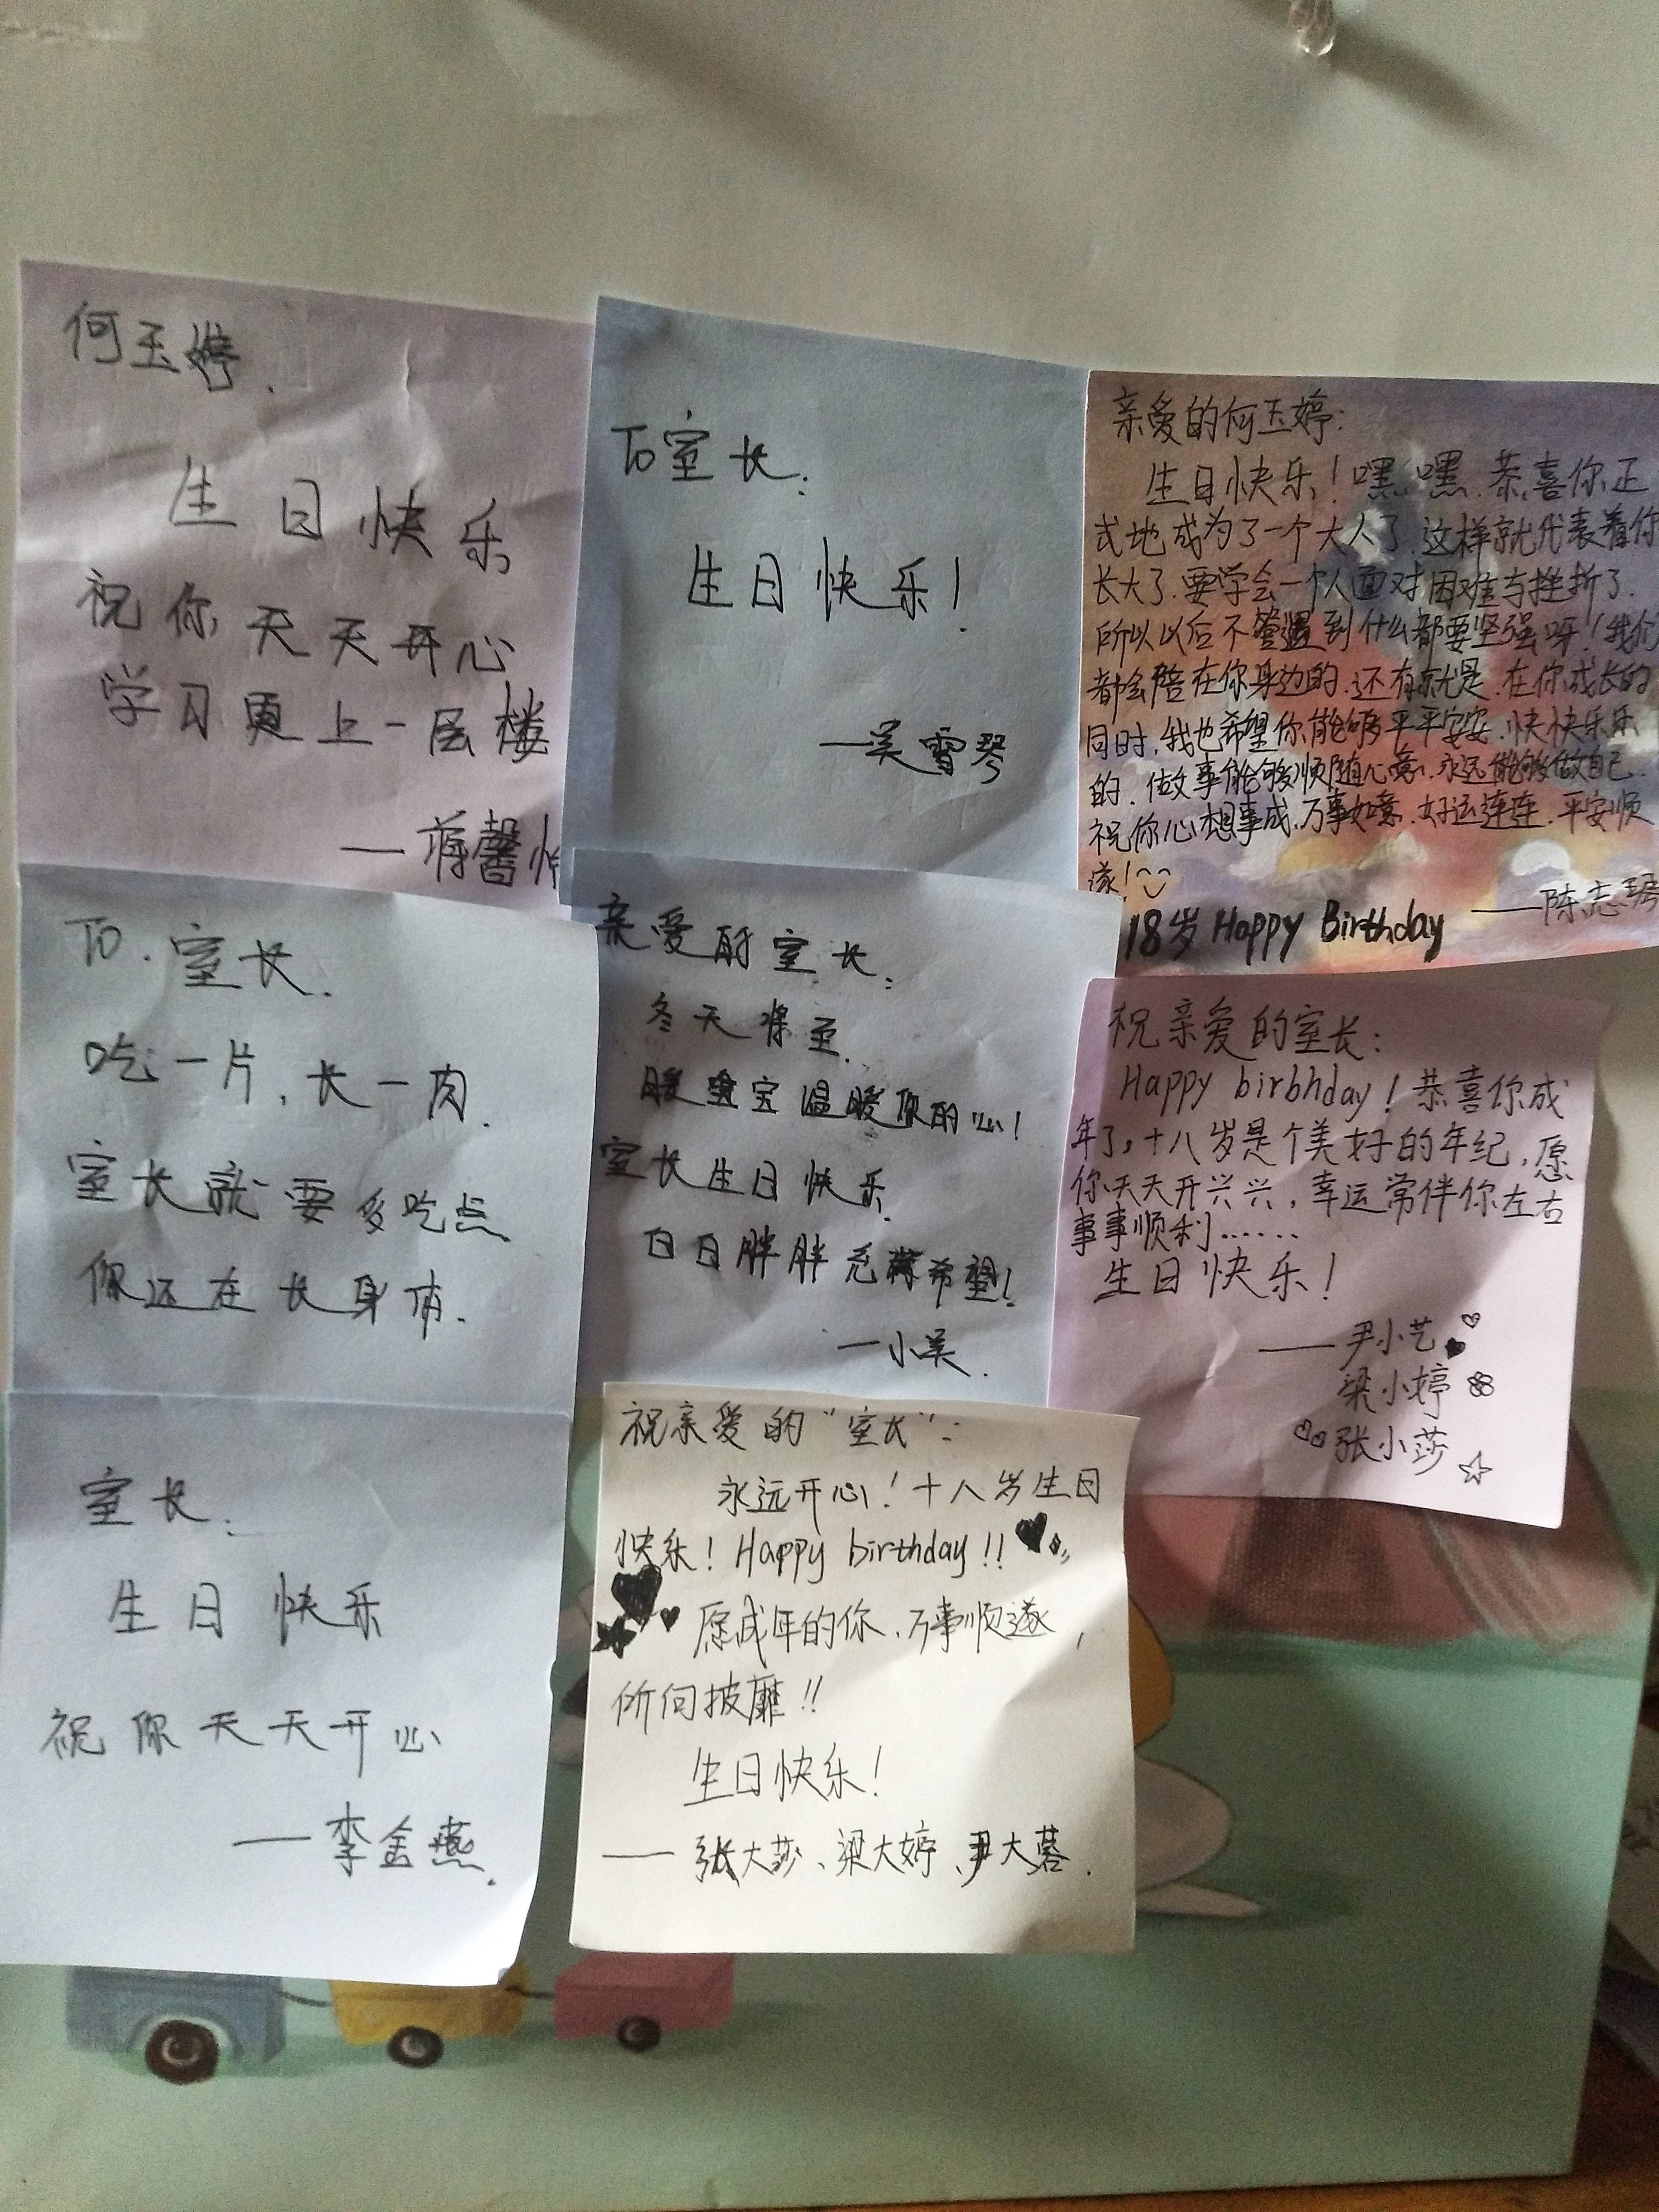 何玉婷.
生日快乐
祝你天天开心
学习更上一层楼
—蒋馨
To室长:
生日快乐!
—吴雪琴
亲爱的何玉婷:
生日快乐!嘿嘿.恭喜你正
式地成为了一个大人了.这样就代表着你
长大了.要学会一个人面对困难与挫折了.
所以以后不管遇到什么都要坚强呀!我们
都会陪在你身边的.还有就是.在你成长的
同时,我也希望你能够平平安安.快快乐乐
的.做故事能够顺随心意.永远能够做自己.
祝你心想事成.万事如意.好运连连.平安顺
遂!
——陈志琚
18岁 Happy Birthday
To.室长.
吃一片,长一肉.
室长就要多吃点
你还在长身体.
亲爱的室长:
冬天将至.
暖宝宝温暖你的心!
室长生日快乐.
白白胖胖充满希望!
—小吴.
祝亲爱的室长:
Happy birbhday!恭喜你成
年了,十八岁是个美好的年纪,愿
你天天开兴兴,幸运常伴你左右
事事顺利……
生日快乐!
——尹小艺
梁小婷
张小莎
室长:
生日快乐
祝你天天开心
——李金燕.
祝亲爱的“室长”:
永远开心!十八岁生日
快乐!Happy birthday!!
愿成年的你,万事顺遂,
所向披靡!!
生日快乐!
——张大莎、梁大婷、尹大蓉.